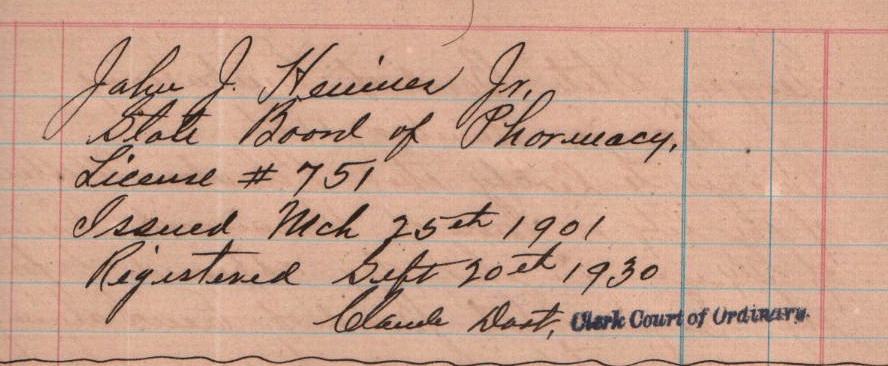 John J. Jr.
State Board of Pharmacy,
License # 751
Issued Mch 25th 1901
Registered Sept 20th 1930
Claude Clerk Court of Ordinary.